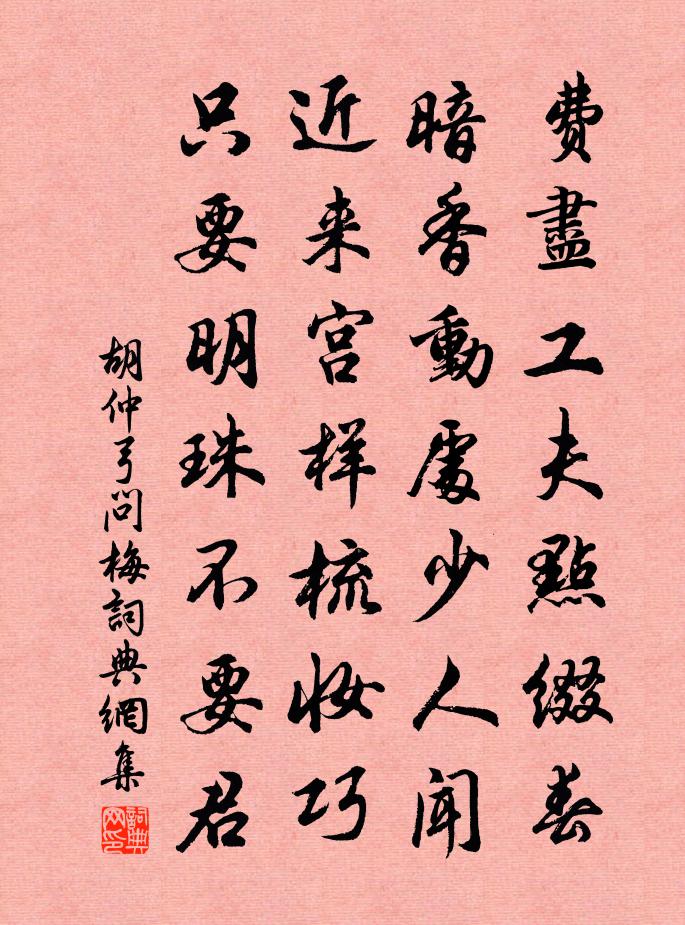 費盡工夫點綴春
暗香動處少人聞
近来宫样梳妆巧
只要明珠不要君
胡仲弓問梅詞典網集
詞典网印